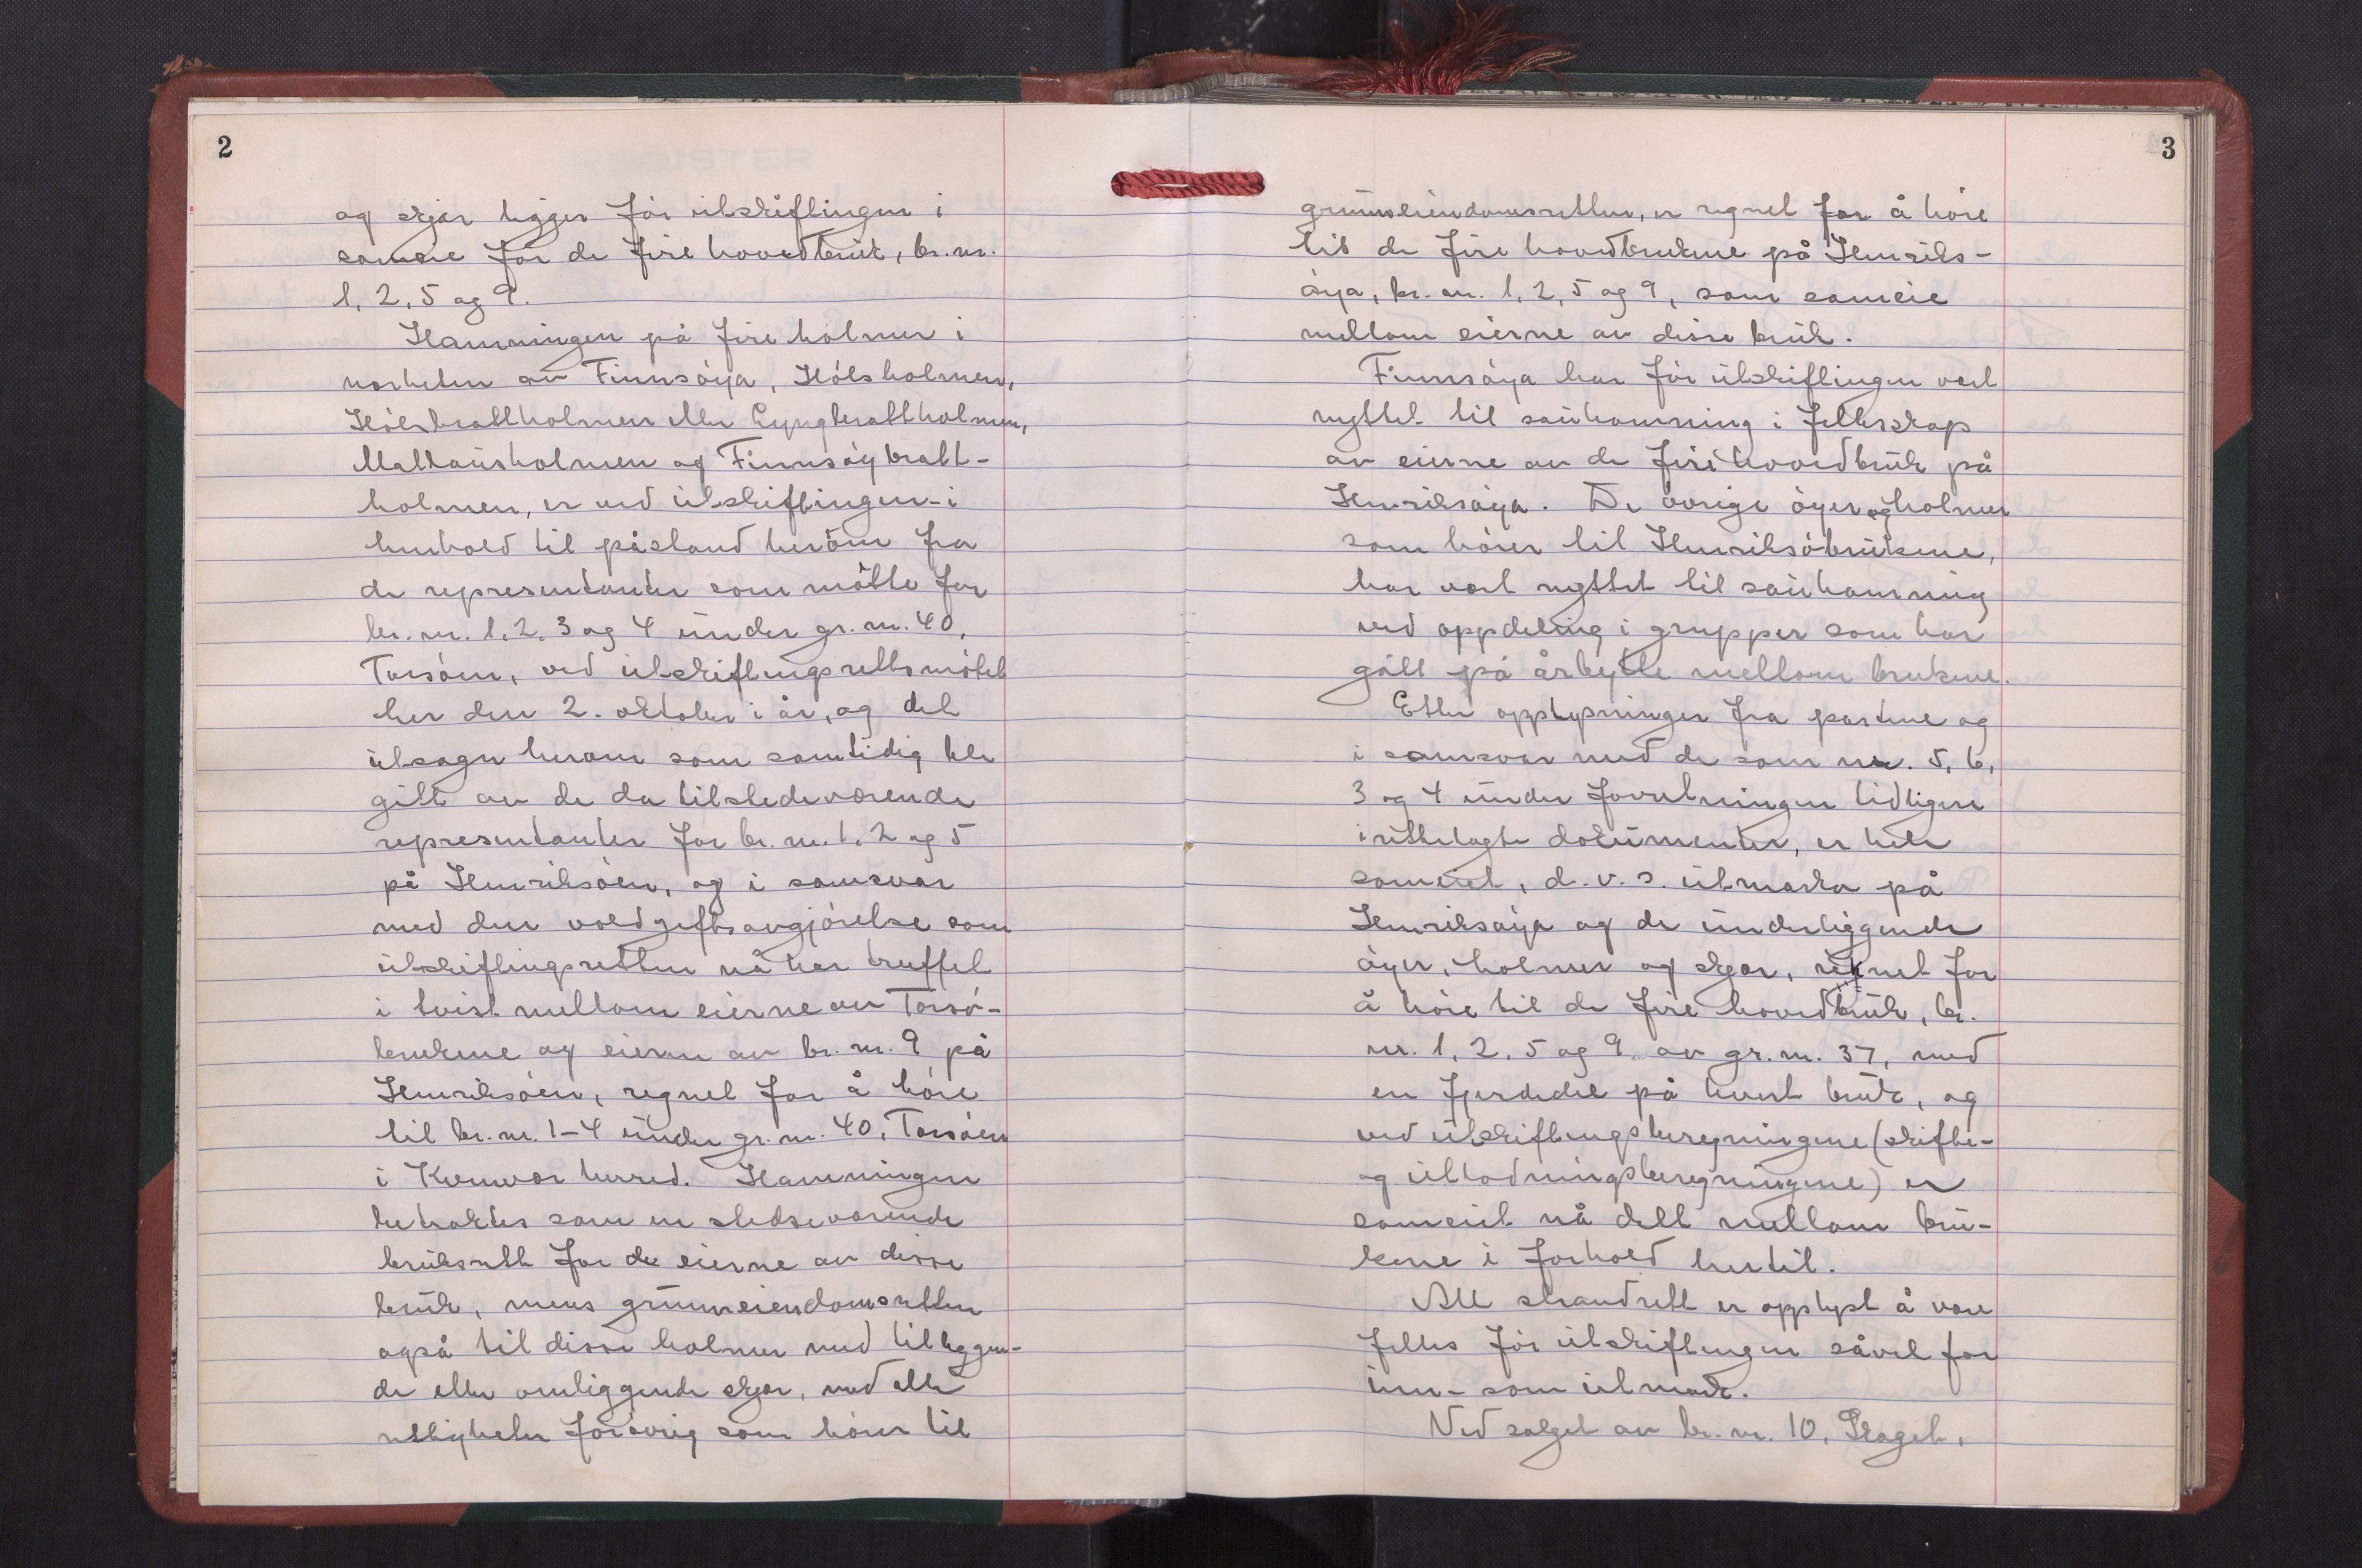 2
og skjær ligger før utskiftingen i
sameie for de fire hovedbruk, br. nr.
1, 2, 5 og 9.
Hamningen på fire holmer i
nærheten av Finnsøya, Hólsholmen,
Hólsbrattholmen eller Lyngbrattholmen,
Mattausholmen og Finnsøybratt-
holmen, er ved utskiftingen - i
henhold til påstand herom fra
de representanter som møtte for
br. nr. 1, 2, 3 og 4 under gr. nr. 40,
Torsøen, ved utskiftingsrettsmøtet
her den 2. oktober i år, og det
utsagn herom som samtidig ble
gitt av de da tilstedeværende
representanter for br. nr. 1, 2 og 5
på Henriksøen, og i samsvar
med den voldgiftsavgjørelse som
utskiftingsretten nå har truffet
i tvist mellom eierne av Torsø-
brukene og eieren av br. nr. 9 på
Henriksøen, regnet for å høre
til br. nr. 1-4 under gr. nr. 40, Torsøen
i Kornvær herred. Hamningen
betraktes som en stedsevarende
bruksrett for de eierne av disse
bruk, mens grunneiendomsretten
også til disse holmer med tilliggen-
de eller omliggende skjær, med alle
rettigheter forøvrig som hører til
3
grunneiendomsretten, er regnet for å høre
til de fire hovedbrukene på Henriks-
øya, br. nr. 1, 2, 5 og 9, som sameie
mellom eierne av disse bruk.
Finnsøya har før utskiftingen vært
nyttet til sauhamning i fellesskap
av eierne av de fire hovedbruk på
Henriksøya. De øvrige øyer og holmer
som hører til Henriksøbrukene,
har vært nyttet til sauhamning
ved oppdeling i grupper som har
gått på årbytte mellom brukene.
Etter opplysninger fra partene og
i samsvar med de som nr. 5, 6,
3 og 4 under forretningen tidligere
irettelagte dokumenter, er hele
sameiet, d. v. s. utmarka på
Henriksøya og de underliggende
øyer, holmer og skjær, reknet for
å høre til de fire hovedbruk, br.
nr. 1, 2, 5 og 9 av gr. nr. 37, med
en fjerdedel på hvert bruk, og
ved utskiftingsberegningene (skifte-
og utlodningsberegningene) er
sameiet nå delt mellom bru-
kene i forhold hertil.
All strandrett er opplyst å være
felles før utskiftingen såvel for
inn- som utmark.
Ved salget av br. nr. 10,